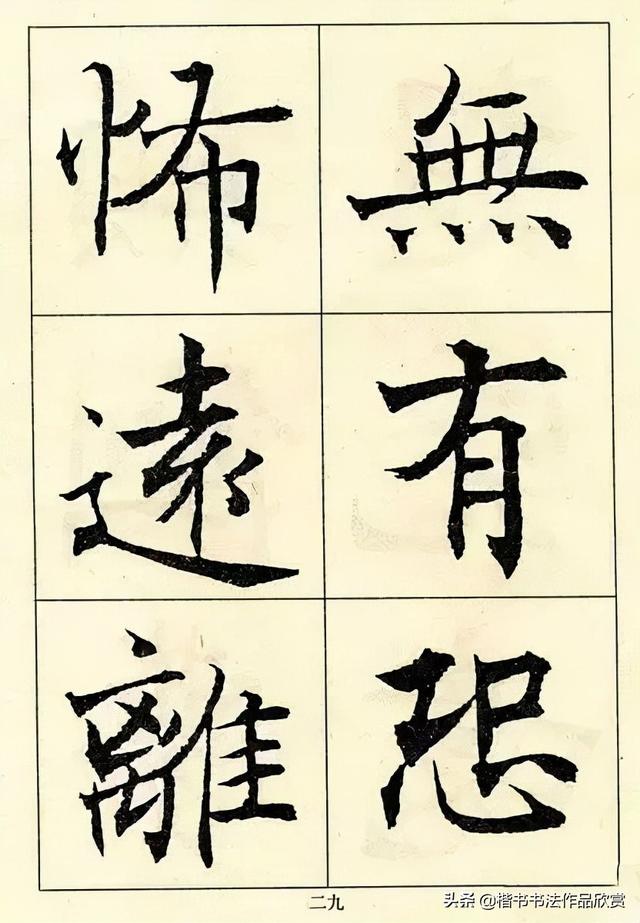 無有恐
怖遠離
二九
头条 @楷书书法作品欣赏